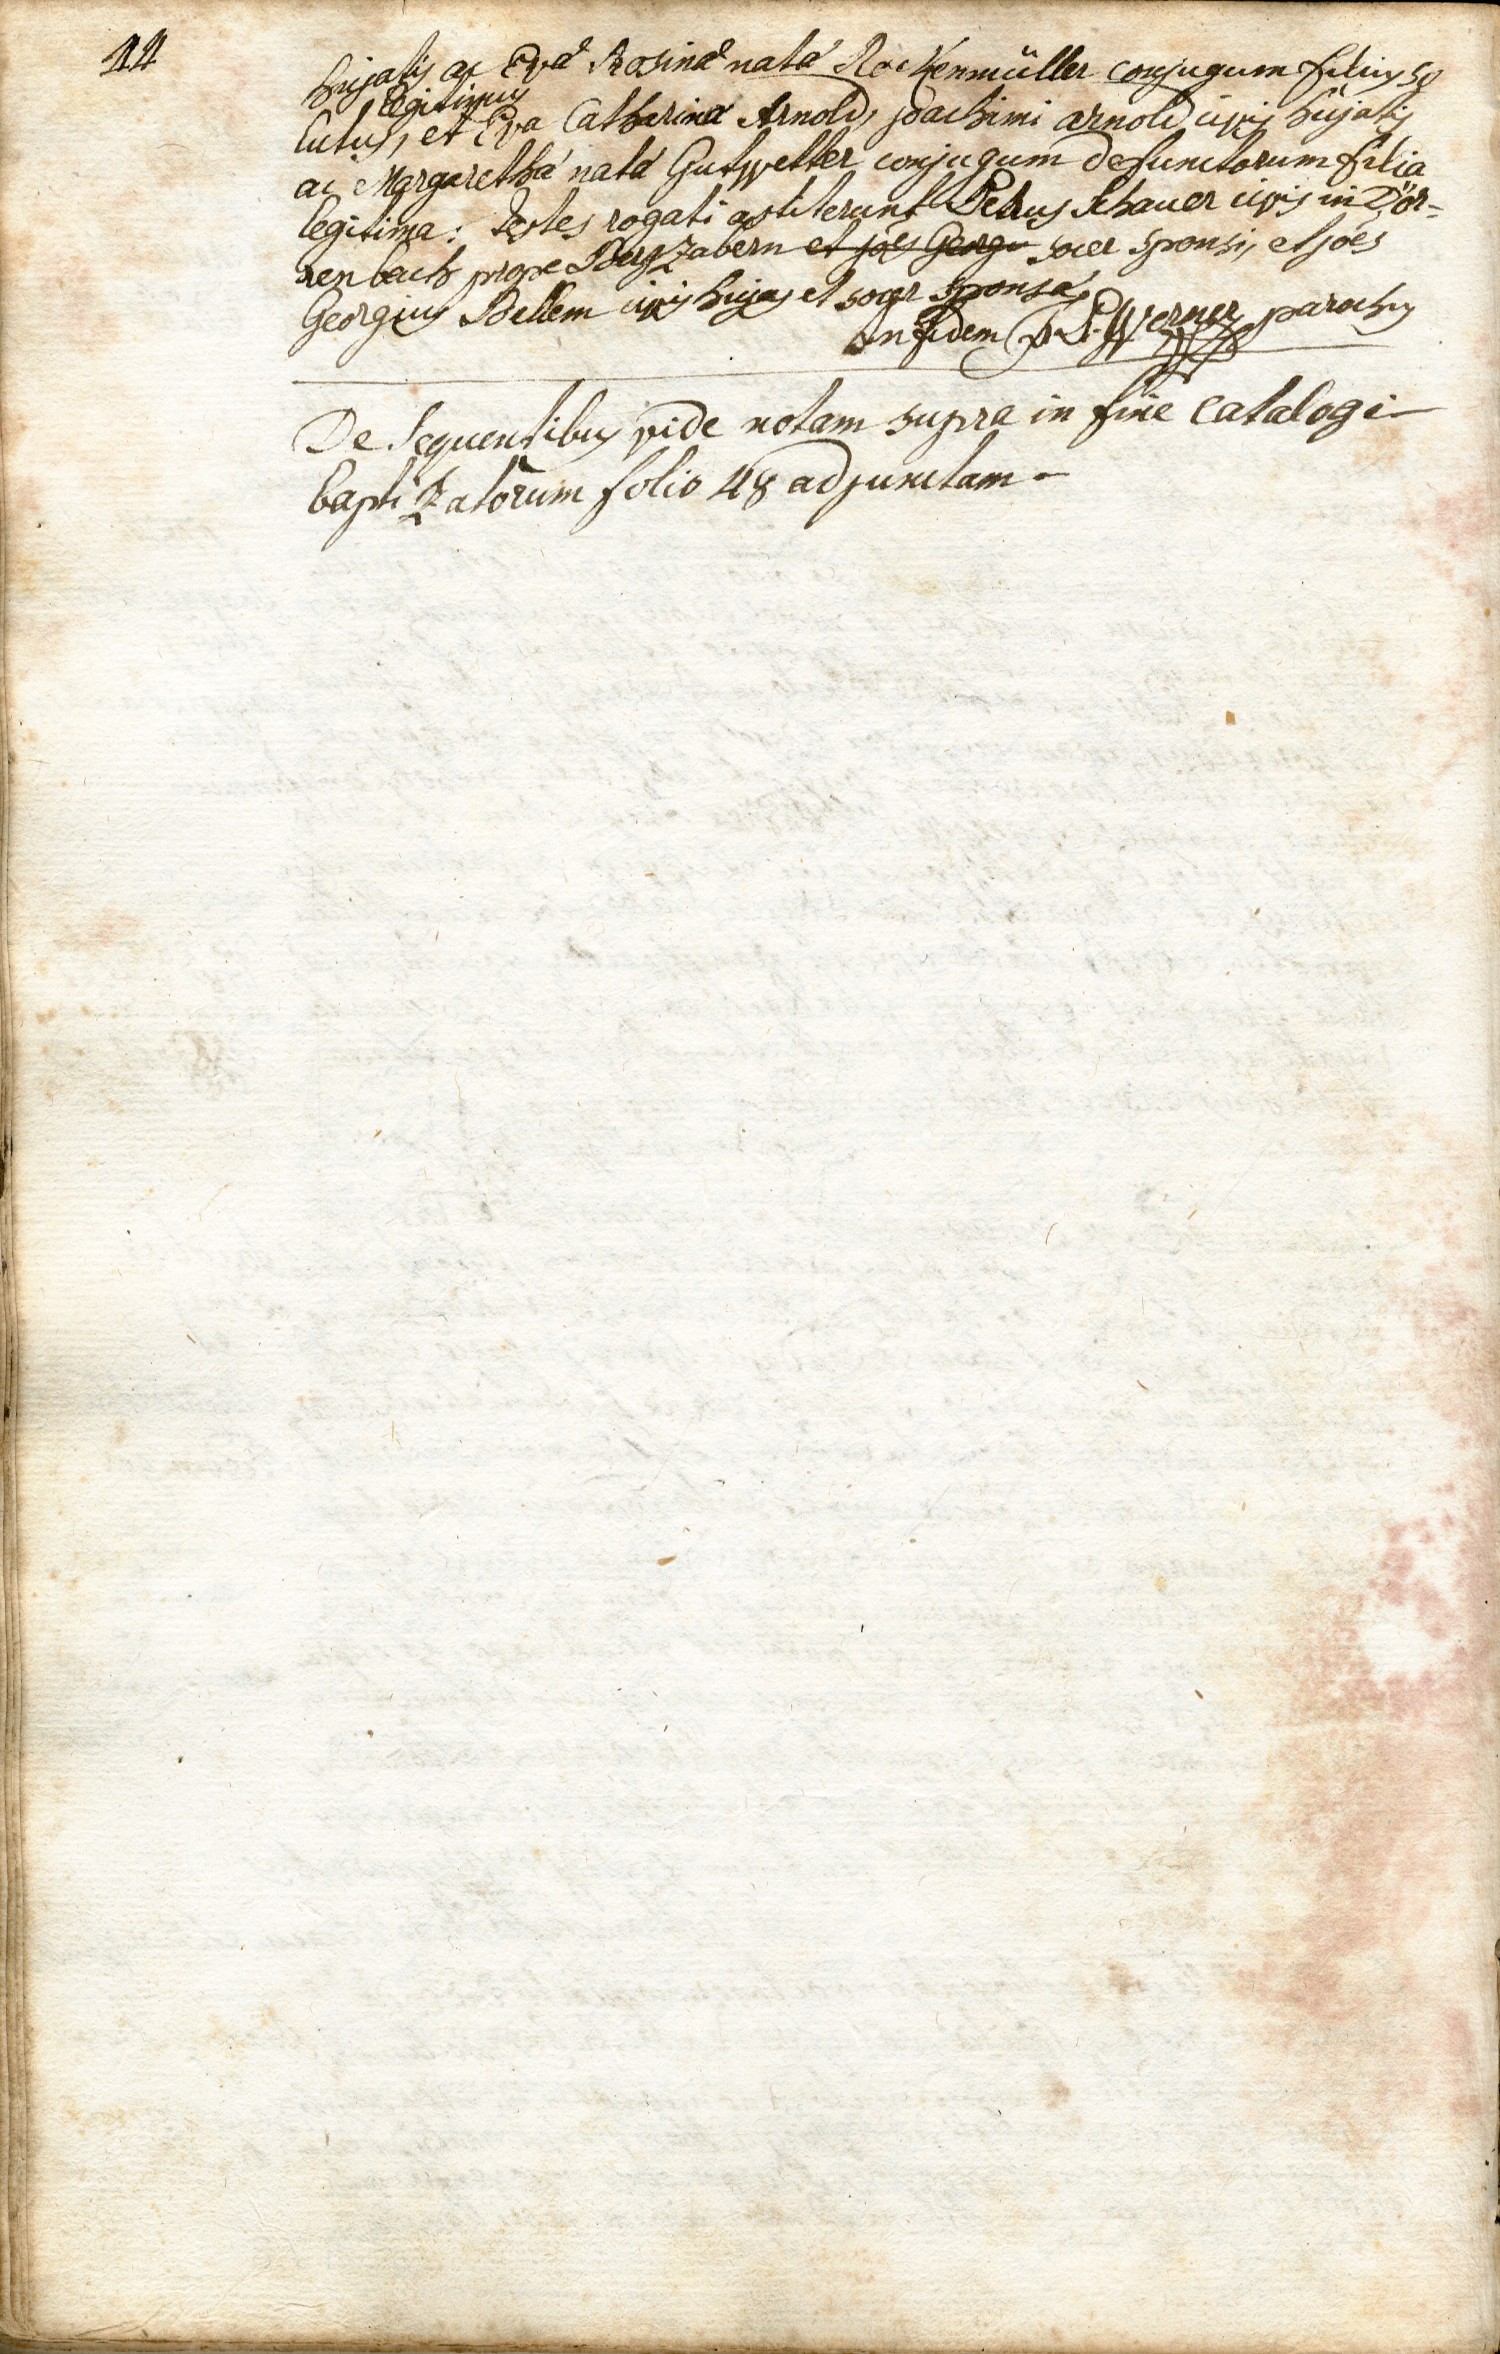 44
hujatis ac Evá Rosiná natá Rockenmüller conjugum filius so
legitimus
lutus, et Eva Catharina Arnold, joachimi arnold civis hujatis
ac Margarethá natá Gutwetter conjugum defunctorum filia
legitima: testes rogati astiterunt Petrus Schauer civis in Dör-
renbach prope Bergzabern et joes Georgi socer sponsi, et joes
Georgius Bellem civis hujas et socer sponsá
in fidem P. L. Werner parochus
De Sequentibus vide notam supra in fine Catalogi
baptizatorum folio 48 adjunctam